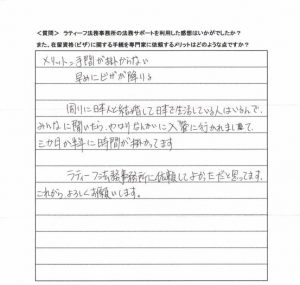 <質問> ラティーフ法務事務所の法務サポートを利用した感想はいかがでしたか?
また、在留資格(ビザ)に関する手続を専門家に依頼するメリットはどのような点ですか?
メリット→手間が掛からない
早めにビザが降りる
周りに日本人と結婚して日本で生活している人はいるんで、
みんなに聞いたら、やはりなんかいに入管に行かれまして
三カ月か半年に時間が掛かってます
ラティーフ法務事務所に依頼してよかただと思ってます。
これからよろしくお願いします。